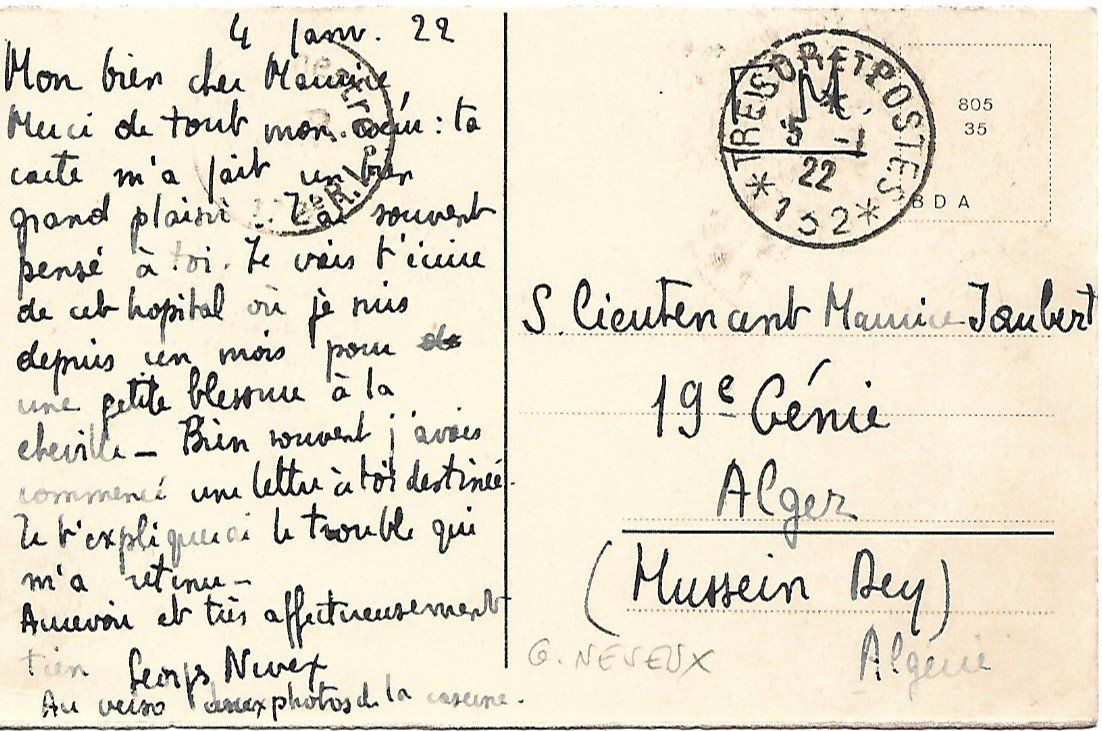 4 Janv. 22
Mon bien cher Maurice,
Merci de tout mon cœur : ta
carte m'a fait un bien
grand plaisir. J'ai souvent
pensé à toi. Je vais t'écrire
de cet hopital où je suis
depuis un mois pour
une petite blessure à la
cheville – Bien souvent j'avais
commencé une lettre à toi destinée.
Je t'expliquerai le trouble qui
m'a retenu –
Aurevoir et très affectueusement
tien Georges Nevex
Au verso deux photos de la caserne.
TRESOR ET POSTES
5 -1
22
*152*
805
35
BDA
S. Lieutenant Maurice Jaubert
19e Génie
Alger
(Hussein Dey)
Algérie
G. NEVEUX